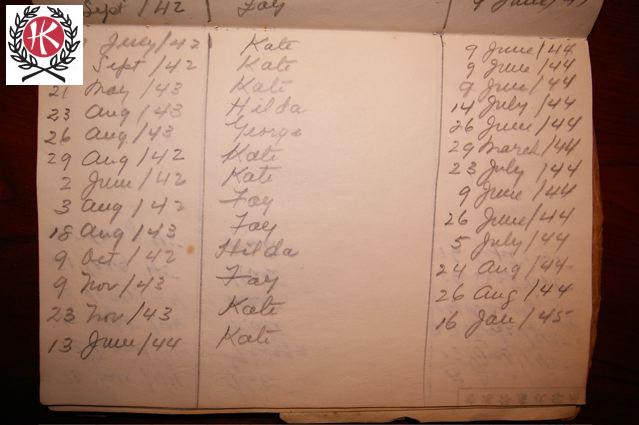 Sept /42 Fay 9 June/4
July/42 Kate 9 June/44
Sept /42 Kate 9 June/44
21 May /43 Kate 9 June/44
23 Aug /43 Hilda 14 July /44
26 Aug /43 George 26 June/44
29 Aug /42 Kate 29 March/44
2 June /42 Kate 23 July /44
3 Aug /42 Fay 9 June /44
18 Aug /43 Fay 26 June/44
9 Oct /42 Hilda 5 July /44
9 Nov /43 Fay 24 Aug /44
23 Nov /43 Kate 26 Aug /44
13 June/44 Kate 16 Jan /45
HK